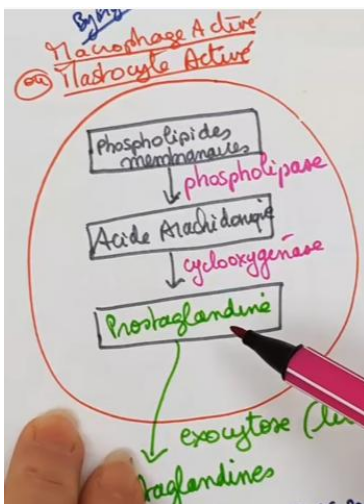 Macrophage Activé
ou Mastocyte Activé
phospholipides
membranaires
phospholipase
Acide Arachidonique
cyclooxygénase
Prostaglandine
exocytose